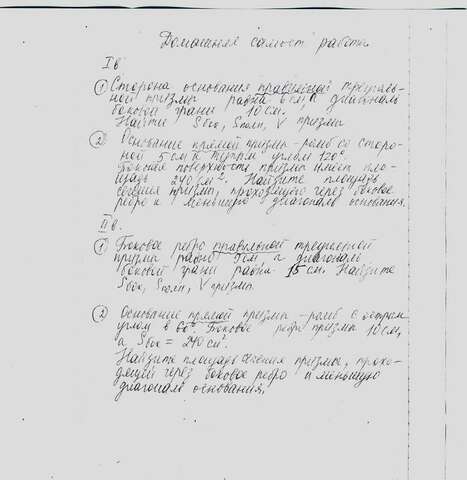 Домашняя самост. работа
I в.
① Сторона основания правильной треуголь-
ной призмы равна 6 см, а диагональ
боковой грани 10 см.
Найти Sбок, Sполн, V призмы
② Основание прямой призмы - ромб со сторо-
ной 5 см и тупым углом 120°.
Боковая поверхность призмы имеет пло-
щадь 240 см². Найдите площадь
сечения призмы, проходящего через боковое
ребро и меньшую диагональ основания.
II в.
① Боковое ребро правильной треугольной
призмы равно 9 см, а диагональ
боковой грани равна 15 см. Найдите
Sбок, Sполн, V призмы.
② Основание прямой призмы - ромб с острым
углом в 60°. Боковое ребро призмы 10 см,
а Sбок = 240 см².
Найдите площадь сечения призмы, прохо-
дящей через боковое ребро и меньшую
диагональ основания.